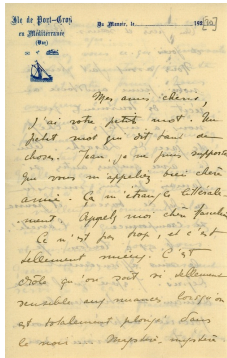 Ile de Port-Cros
en Méditerranée
(Var)
Du Manoir, le 193 [30]
Mes amis chéris,
J'ai votre petit mot. Un
petit mot qui dit tant de
choses. Jean, je ne puis supporter
que vous m'appeliez bien chère
amie. Ça m'étrangle littérale-
ment. Appelez moi chère
Ce n'est pas trop, et c'est
tellement mieux. C'est
drôle qu'on soit si tellement
sensible aux nuances lorsqu'on
est totalement plongé dans
le noir. Mystère, mystère